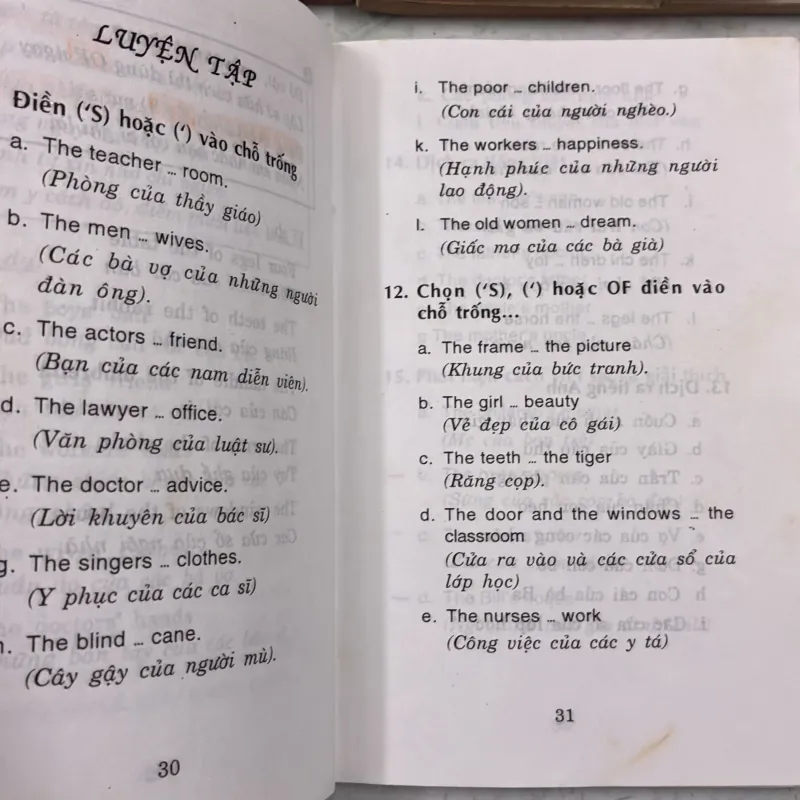 LUYỆN TẬP
Điền ('S) hoặc (') vào chỗ trống
a. The teacher ... room.
(Phòng của thầy giáo)
b. The men ... wives.
(Các bà vợ của những người
đàn ông).
c. The actors ... friend.
(Bạn của các nam diễn viên).
d. The lawyer ... office.
(Văn phòng của luật sư).
e. The doctor ... advice.
(Lời khuyên của bác sĩ)
g. The singers ... clothes.
(Y phục của các ca sĩ)
h. The blind ... cane.
(Cây gậy của người mù).
30
i. The poor ... children.
(Con cái của người nghèo.)
k. The workers ... happiness.
(Hạnh phúc của những người
lao động).
l. The old women ... dream.
(Giấc mơ của các bà già)
12. Chọn ('S), (') hoặc OF điền vào
chỗ trống...
a. The frame ... the picture
(Khung của bức tranh).
b. The girl ... beauty
(Vẻ đẹp của cô gái)
c. The teeth ... the tiger
(Răng cọp).
d. The door and the windows ... the
classroom
(Cửa ra vào và các cửa sổ của
lớp học)
e. The nurses ... work
(Công việc của các y tá)
31